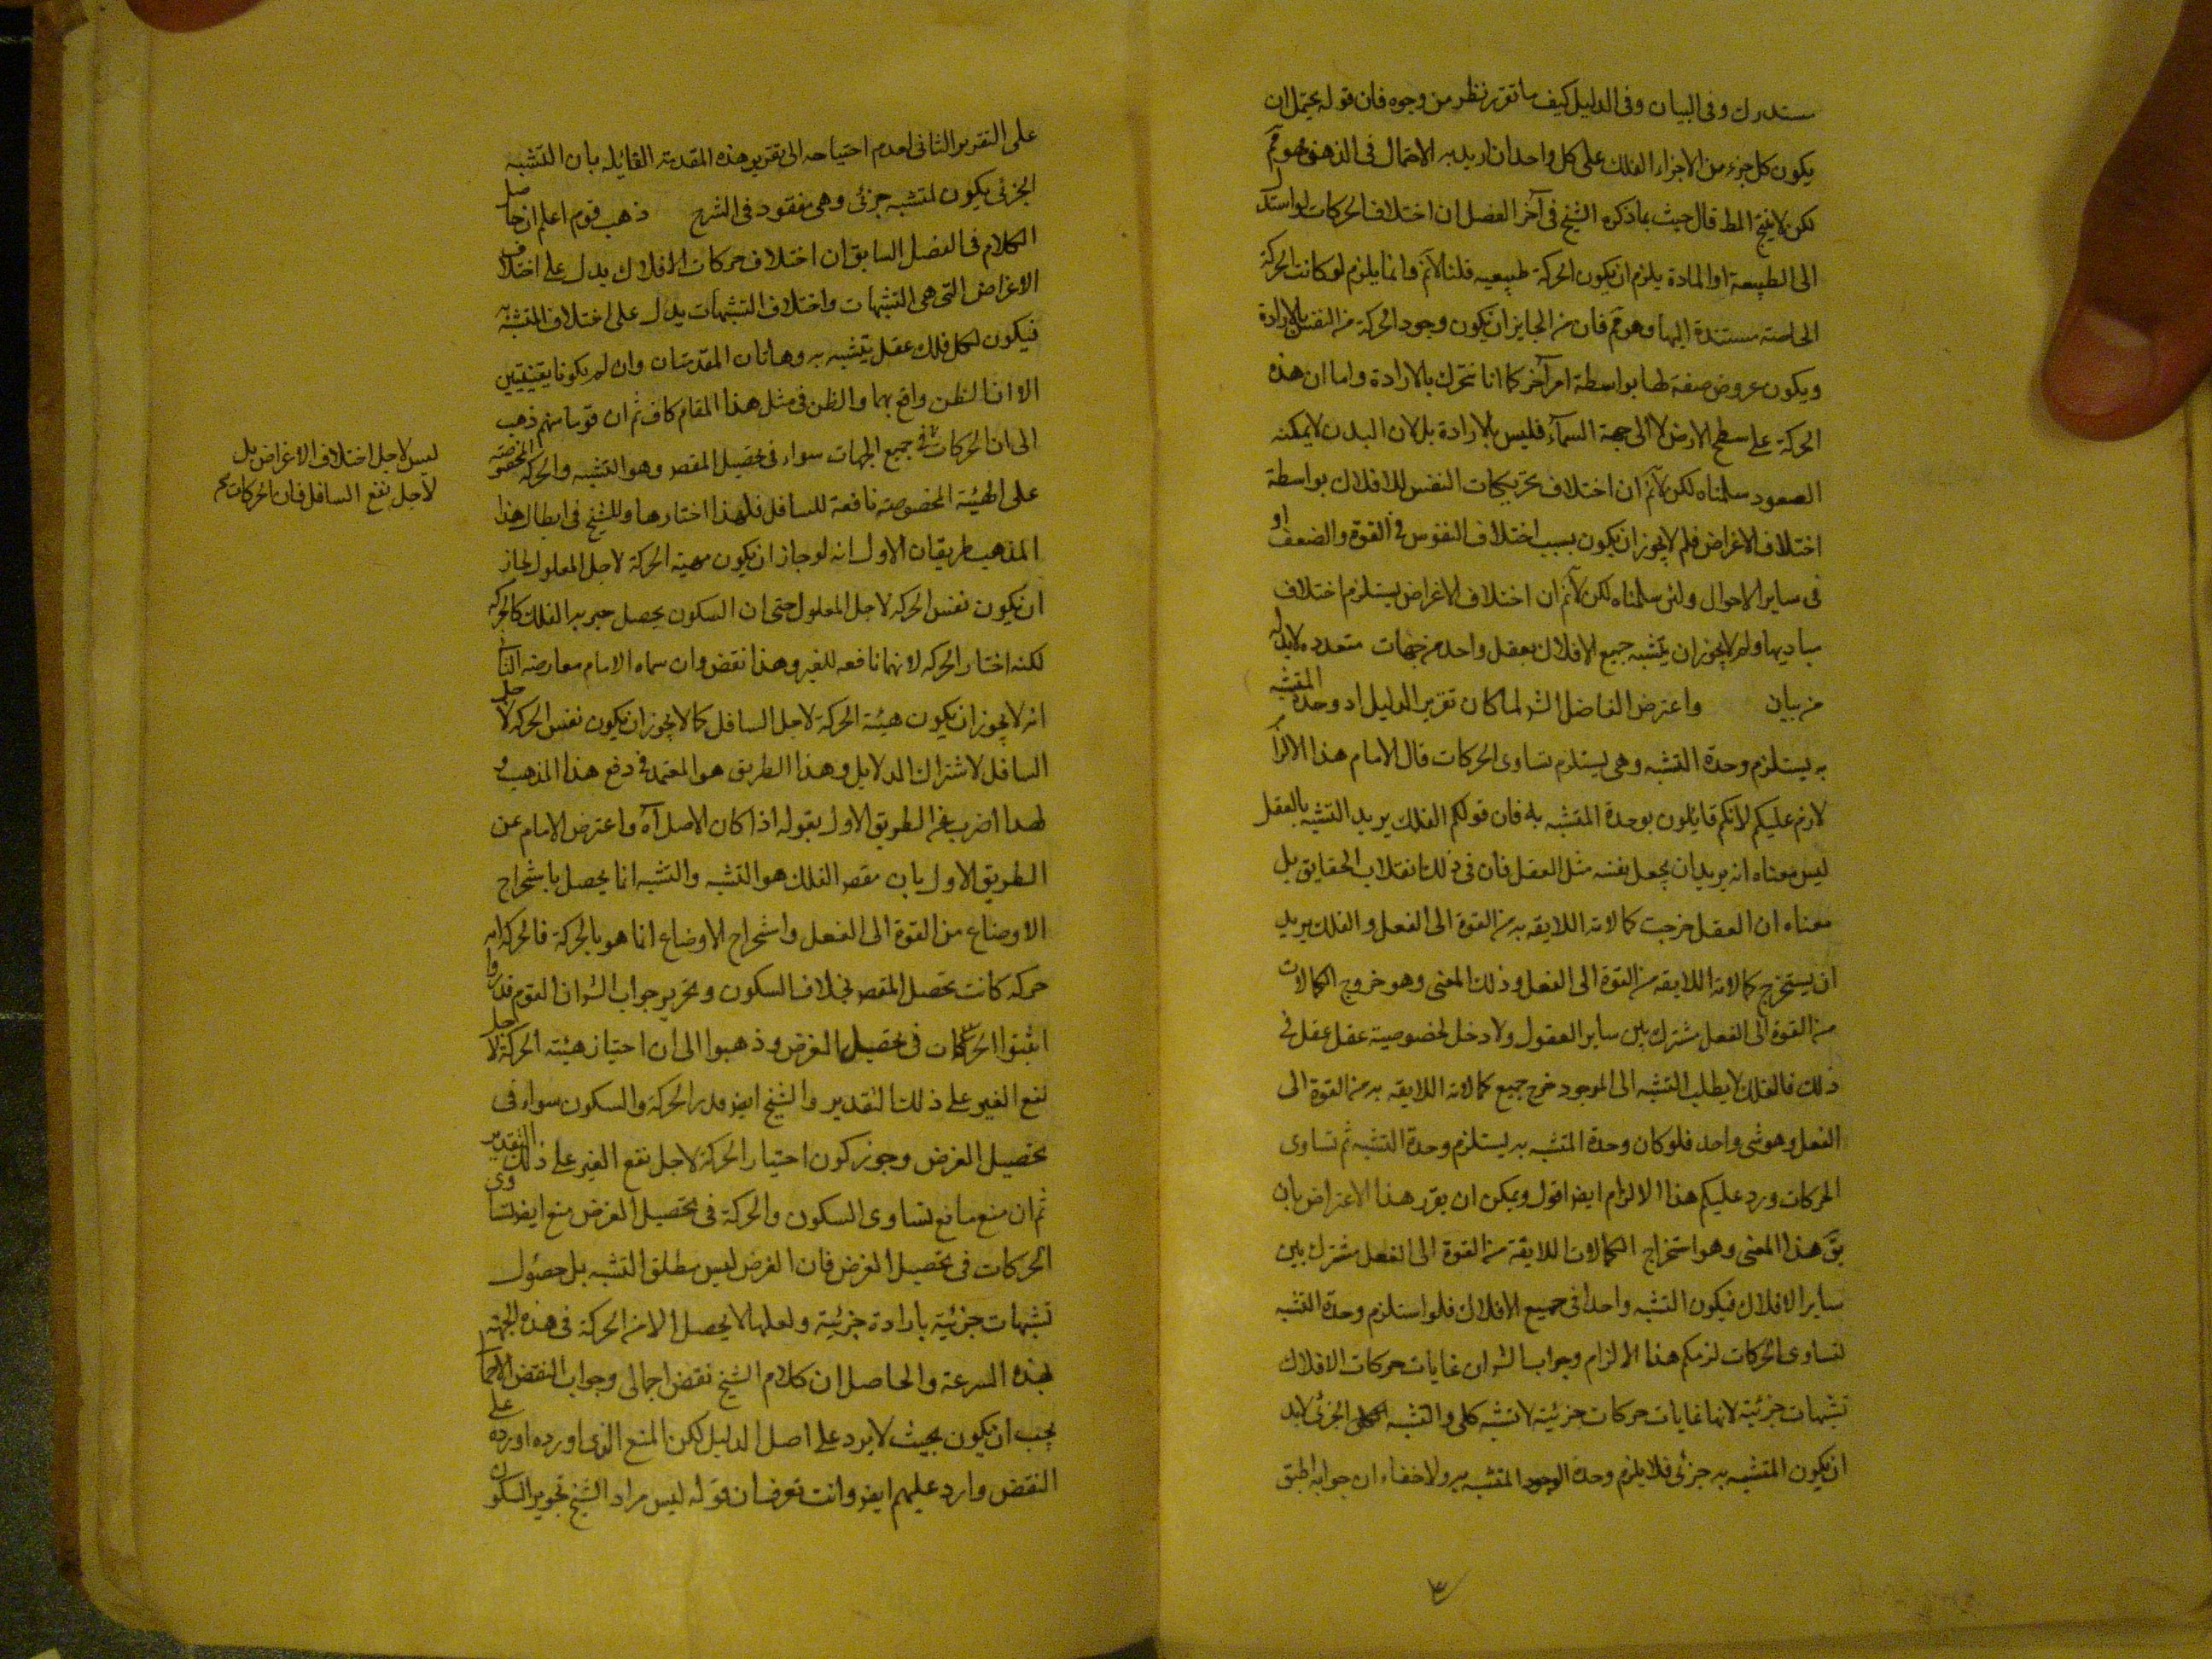 مستدرك وفى البيان وفى الدليل كيف ما تقرر نظر من وجوه فان قوله يحتمل ان
يكون كل جزء من الاجزاء الفلك على كل واحد ان اريد به الاحتمال فى الذهن فهو مم
لكن لا ينتج المط قال حيث بما ذكره الشيخ فى آخر الفصل ان اختلاف الحركات لو استند
الى الطبيعة او المادة يلزم ان يكون الحركة طبيعيه قلنا لانم وانما يلزم لو كانت الحركة
الخاصة مستندة اليها وهو مم فان من الجايز ان يكون وجود الحركة من النفس بالارادة
ويكون عروض صفة لها بواسطة امر آخر كما انا نتحرك بالارادة واما ان هذه
الحركة على سطح الارض لا الى جهة السمآء فليس بالارادة بل لان البدن لا يمكنه
الصعود سلمناه لكن لانم ان اختلاف تحريكات النفس للافلاك بواسطة
اختلاف الاغراض فلم لا يجوز ان يكون بسبب اختلاف النفوس فى القوة والضعف او
فى ساير الاحوال ولئن سلمناه لكن لانم ان اختلاف الاغراض يستلزم اختلاف
مباديها ولم لا يجوز ان يتشبه جميع الافلاك بعقل واحد من جهات متعدده لابد له
من بيان واعترض الفاضل الش لما كان تقرير الدليل ان وحدة المتشبه
به يستلزم وحدة التشبه وهى يستلزم تساوى الحركات قال الامام هذا الالزام
لازم عليكم لانكم قايلون بوحدة المتشبه به فان قولكم الفلك يريد التشبه بالعقل
ليس معناه انه يريد ان يجعل نفسه مثل العقل فان فى ذلك انقلاب الحقايق بل
معناه ان العقل خرجت كمالاته اللايقه به من القوة الى الفعل والفلك يريد
ان يستخرج كمالاته اللايقه من القوة الى الفعل وذلك المعنى وهو خروج الكمالات
من القوة الى الفعل مشترك بين ساير العقول ولا دخل لخصوصية عقل عقل فى
ذلك فالفلك لا يطلب التشبه الى الموجود خرج جميع كمالاته اللايقه به من القوة الى
الفعل وهو شى واحد فلو كان وحدة المتشبه به يستلزم وحدة التشبه ثم تساوى
الحركات ورد عليكم هذا الالزام ايض اقول ويمكن ان يقرر هذا الاعتراض بان
يق هذا المعنى وهو استخراج الكمالات اللايقة من القوة الى الفعل مشترك بين
ساير الافلاك فيكون التشبه واحدا فى جميع الافلاك فلو استلزم وحدة التشبه
لتساوى الحركات لزمكم هذا الالزام وجواب الش ان غايات حركات الافلاك
تشبهات جزئية لانها غايات حركات جزئية لا تشبه كلى والتشبه الجزئى لابد
ان يكون المتشبه به جزئى فلا يلزم وحدة المتشبه به ولا خفاء ان جوابه اطبق
على التقرير الثانى لعدم احتياجه الى تقرير هذه المقدمة القائله بان التشبه
الجزئى يكون لمتشبه جزئى وهى مفقود فى الشرح ذهب قوم اعلم ان حاصل
الكلام فى الفصل السابق ان اختلاف حركات الافلاك يدل على اختلاف
الاغراض التى هى التشبهات واختلاف التشبهات يدل على اختلاف المتشبه به
فيكون لكل فلك عقل يتشبه به وهاتان المقدمتان وان لم يكونا يقينيتين
الا ان الظن واقع بهما والظن فى مثل هذا المقام كاف ثم ان قوما منهم ذهب
الى ان الحركات فى جميع الجهات سواء فى تحصيل المقصر وهو التشبه والحركة المخصوصة
على الهيئة المخصوصة نافعة للسافل فلهذا اختارها وللشيخ فى ابطال هذا
المذهب طريقان الاول انه لو جاز ان يكون هيئة الحركة لاجل المعلول لجاز
ان يكون نفس الحركه لاجل المعلول حتى ان السكون يحصل خيريه الفلك كالحركه
لكنه اختار الحركه لانها نافعه للغير وهذا نقض وان سماه الامام معارضه الثانى
انه لا يجوز ان يكون هيئة الحركة لاجل السافل كما لا يجوز ان يكون نفس الحركه لاجل
السافل لاشتراك الدلايل وهذا الطريق هو المعتمد فى دفع هذا المذهب و
لهذا اضرب عن الطريق الاول بقوله اذا كان الاصل آه واعترض الامام عن
الطريق الاول بان مقصر الفلك هو التشبه والتشبه انما يحصل باستخراج
الاوضاع من القوة الى الفعل واستخراج الاوضاع انما هو بالحركة فالحركة اية
حركه كانت تحصل المقصر بخلاف السكون وتحرير جواب الش ان القوم قدروا
اثبتوا الحركات فى تحصيل الغرض وذهبوا الى ان اختيار هيئة الحركة لاجل
نفع الغير على ذلك التقدير والشيخ ايض قدر الحركة والسكون سواء فى
تحصيل الغرض وجوز كون اختيار الحركة لاجل نفع الغير على ذلك التقدير
ثم ان منع مانع تساوى السكون والحركة فى تحصيل الغرض منع ايض تساوى
الحركات فى تحصيل الغرض فان الغرض ليس مطلق التشبه بل حصول
تشبهات جزئية بارادة جزئية ولعلها لا يحصل الا من الحركة فى هذه الجهة
بهذه السرعة والحاصل ان كلام الشيخ نقض اجمالى وجواب النقض الاجمالى
يجب ان يكون بحيث لا يرد على اصل الدليل لكن المنع الذى اورده اورده على
النقض وارد عليهم ايض وانت تعرف ان قوله ليس مراد الشيخ تجويز السكون
ليس لاجل اختلاف الاغراض بل
لاجل نفع السافل فان الحركات